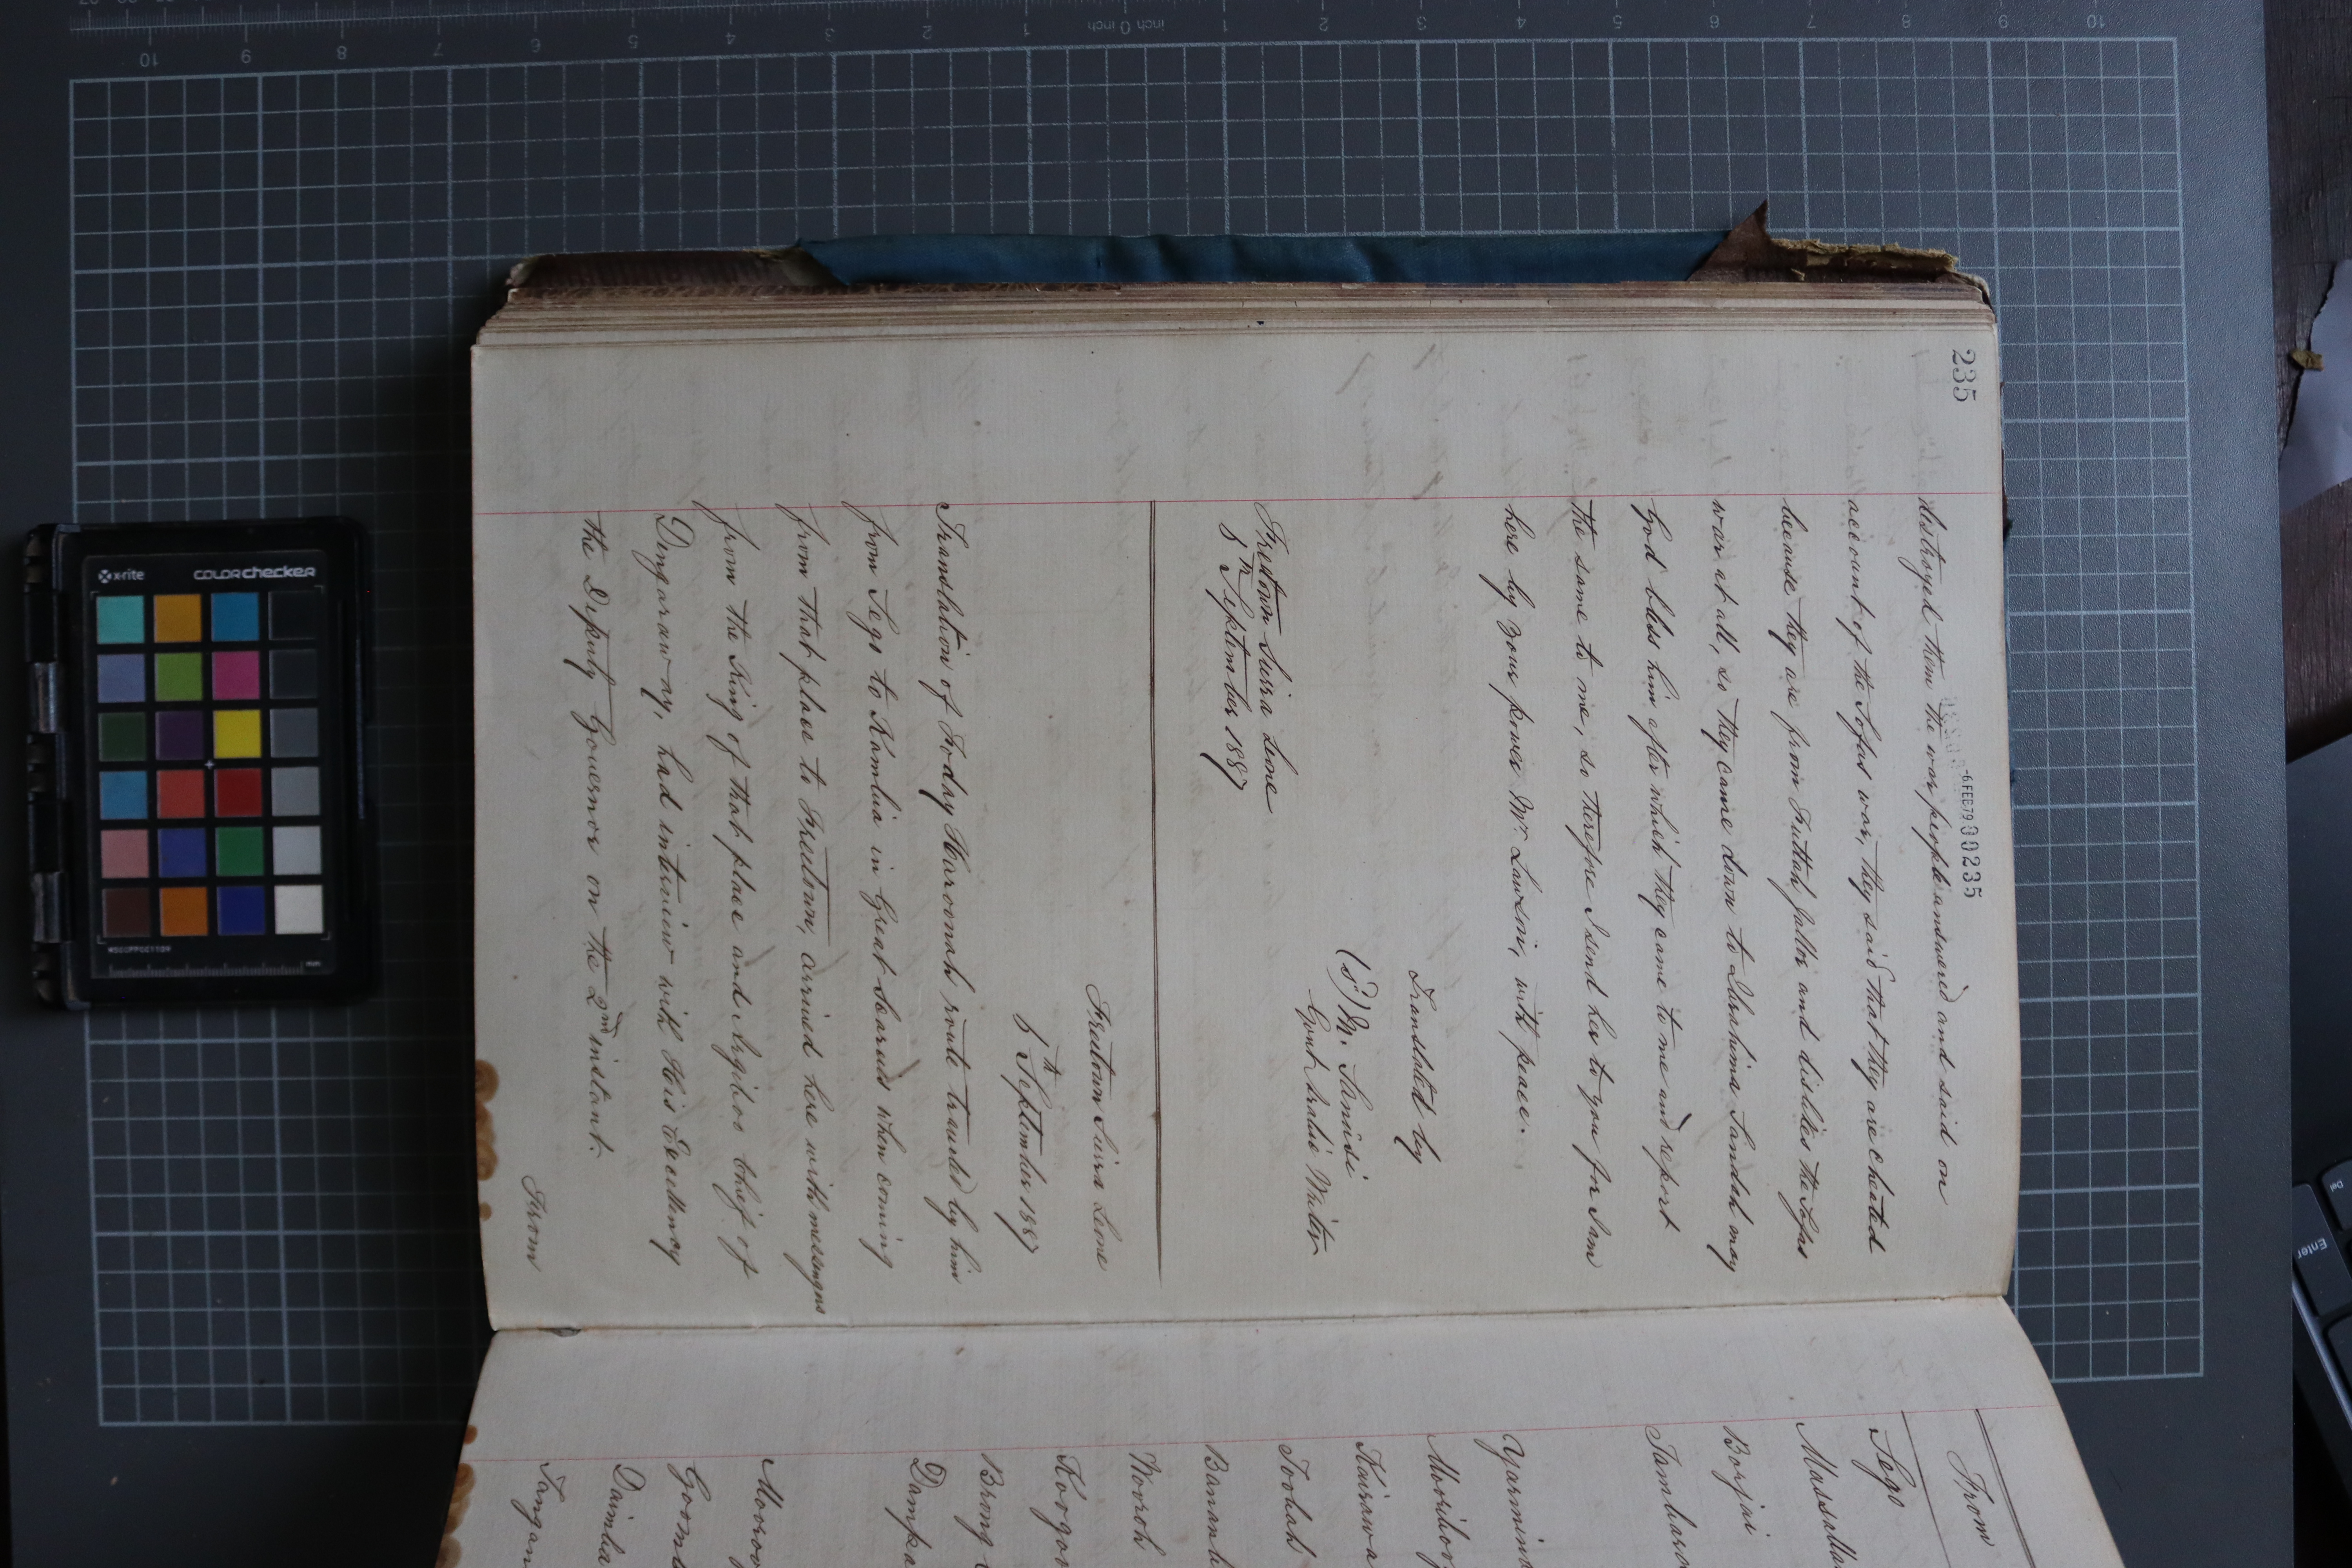 235
-6 FEB 79 00235
destroyed them the war people answered and said on
account of the Sofas war, they said that they are cheated
because they are from Futtah Jallo and dislikes the Sofas
war at all, so they came down to Ibrahima Sandah may
God bless him after which they came to me and report
the same to me, so therefore I send her to you for I am
here by your power Mr Lawson, with peace.
Translated by
(sd) M. Sanusi
Govt Arabic Writer
Freetown Sierra Leone
5th September 1887
Freetown Sierra Leone
5th September 1887
Translation of Foday Haroonah route traveled by him
from Sego to Kambia in Great Scarcies when coming
from that place to Freetown, arrived here with messengers
from the King of that place and chief of
Dingaraway, had interview with His Excellency
the Deputy Governor on the 2nd instant.
From
From
Sego
Massalla
Borjai
Tambaro
Yarmina
Moriboy
Kairawa
Toolah
Bananh
Nooroh
Koogor
Brong
Dampa
Mooroo
Goomb
Daimba
Tangan
x-rite
colorchecker
MSCCPPCC1109
mm
10
9
8
7
6
5
4
3
2
1
inch 0 inch
1
2
3
4
5
6
7
8
9
10
Enter
Del